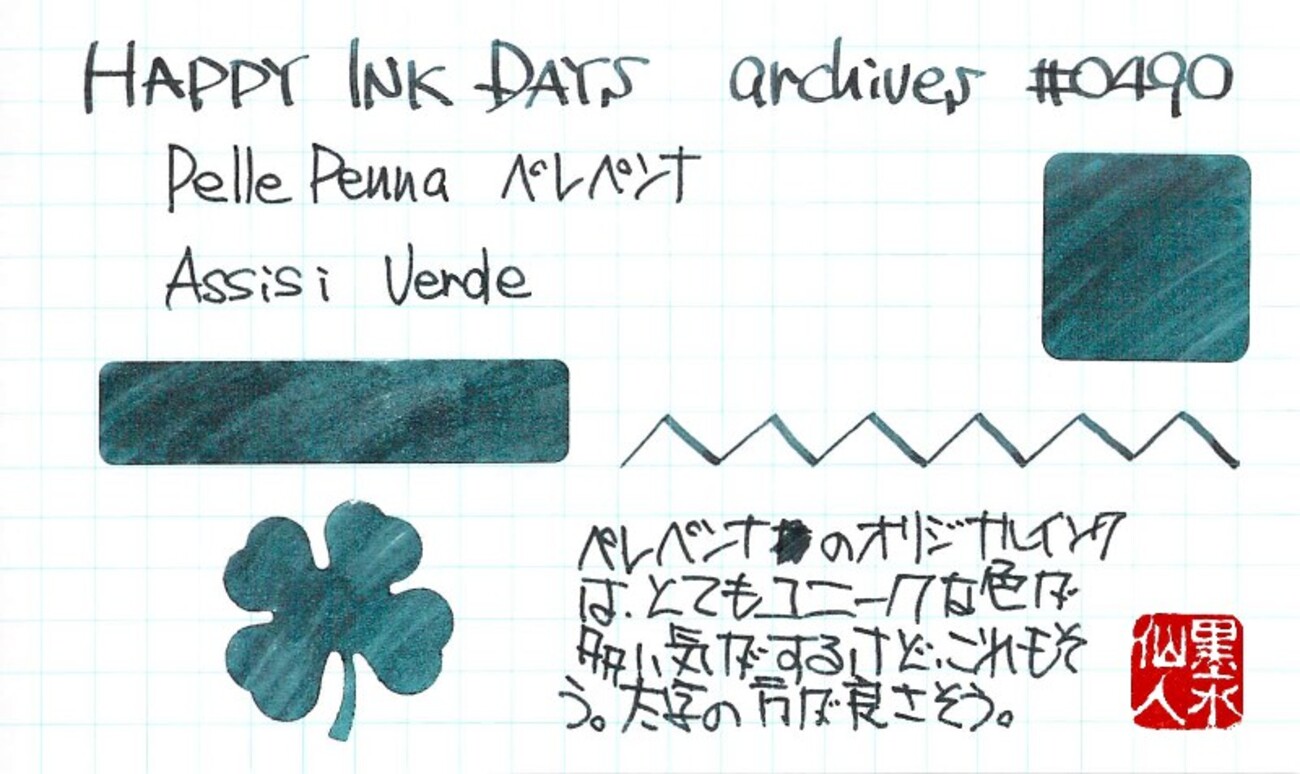 HAPPY INK DAYS archives #0490
Pelle Penna ペレペンナ
Assisi Verde
ペレペンナのオリジナルインク
は、とてもユニークな色が
多い気がするけど、これもそ
う。太字の方が良さそう。
墨水
仙人